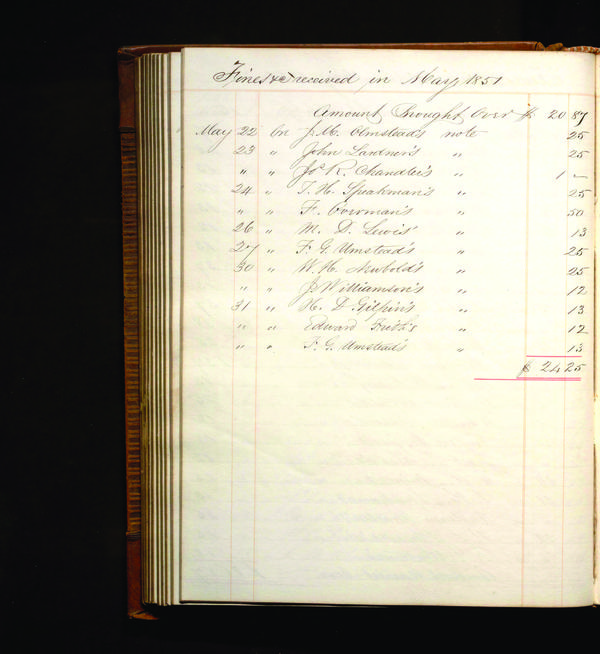 Fines &c received in May 1851
Amount Brought Over $ 20 87
May 22 On J. M. Olmstead's note 25
23 " John Lardner's " 25
" " Jos R. Chandler's " 1 –
24 " T. H. Speakman's " 25
" " F. Overman's " 50
26 " M. D. Lewis' " 13
27 " F. G. Umstead's " 25
30 " W. H. Newbold's " 25
" " J. Williamson's " 12
31 " H. D. Gilpin's " 13
" " Edward " 12
" " F. G. Umstead's " 13
$ 24 25